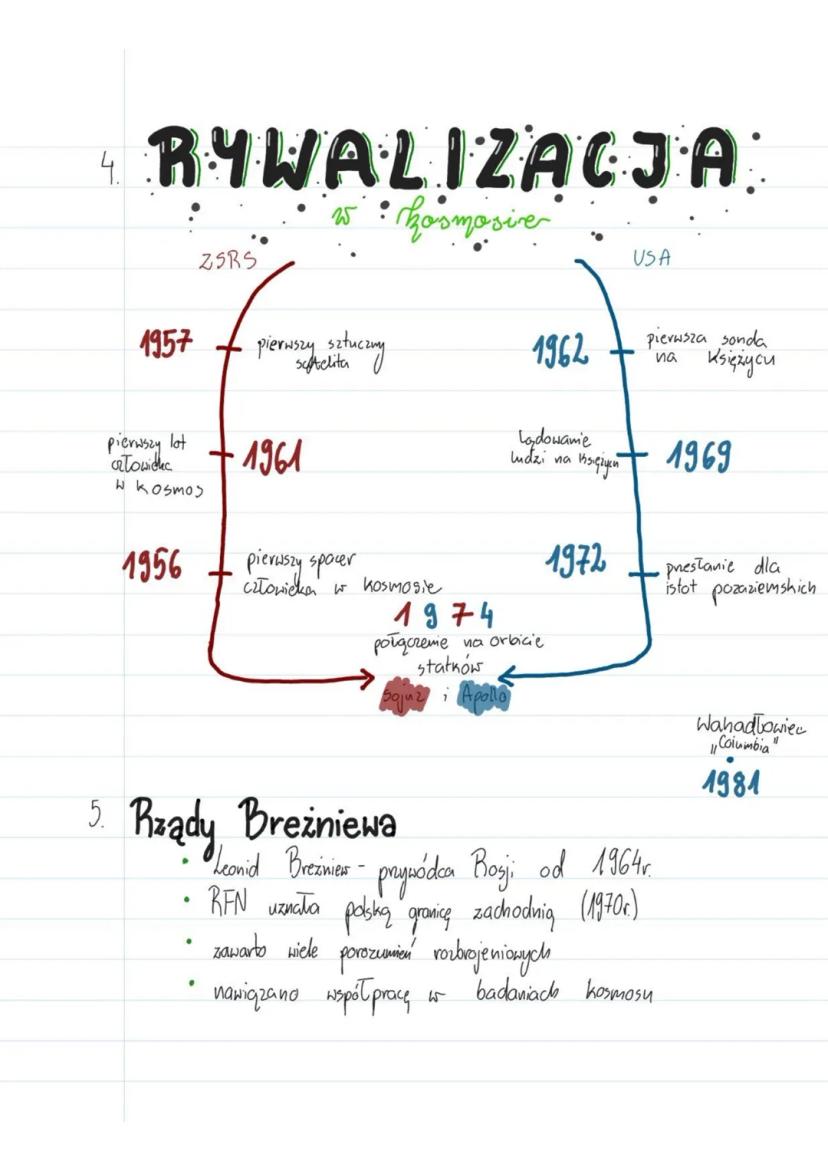 4. RYWALIZACJA
w kosmosie
ZSRS
USA
1957
pierwszy sztuczny
satelita
1962
pierwsza sonda
na Księżycu
pierwszy lot
człowieka
w kosmos
1961
lądowanie
ludzi na Księżycu
1969
1956
pierwszy spacer
człowieka w kosmosie
1972
przesłanie dla
istot pozaziemskich
1974
połączenie na orbicie
statków
Sojuz i Apollo
Wahadłowiec
„Columbia"
1981
5. Rządy Breżniewa
• Leonid Breżniew - przywódca Rosji od 1964r.
• RFN uznała polską granicę zachodnią (1970r.)
• zawarto wiele porozumień rozbrojeniowych
• nawiązano współpracę w badaniach kosmosu